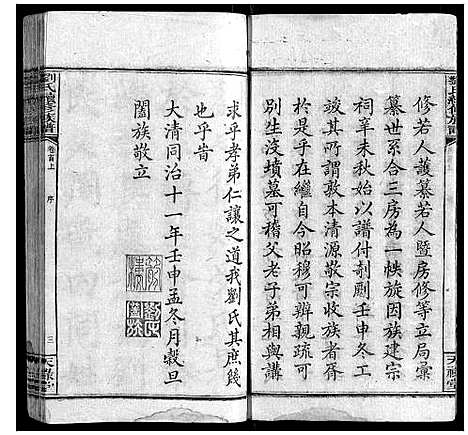 修若人護纂若人暨房修等立局彙
纂世系合三房為一帙旋因族建宗
祠辛未秋始以譜付剞劂壬申冬工
竣其所謂敦本清源敬宗收族者胥
於是乎在繼自今昭穆可辨親疏可
別生沒墳墓可稽父老子弟相與講
求乎孝弟仁讓之道我劉氏其庶幾
也乎旹
大清同治十一年壬申孟冬月穀旦
闔族敬立
劉氏
卷首上
序
三
天祿堂